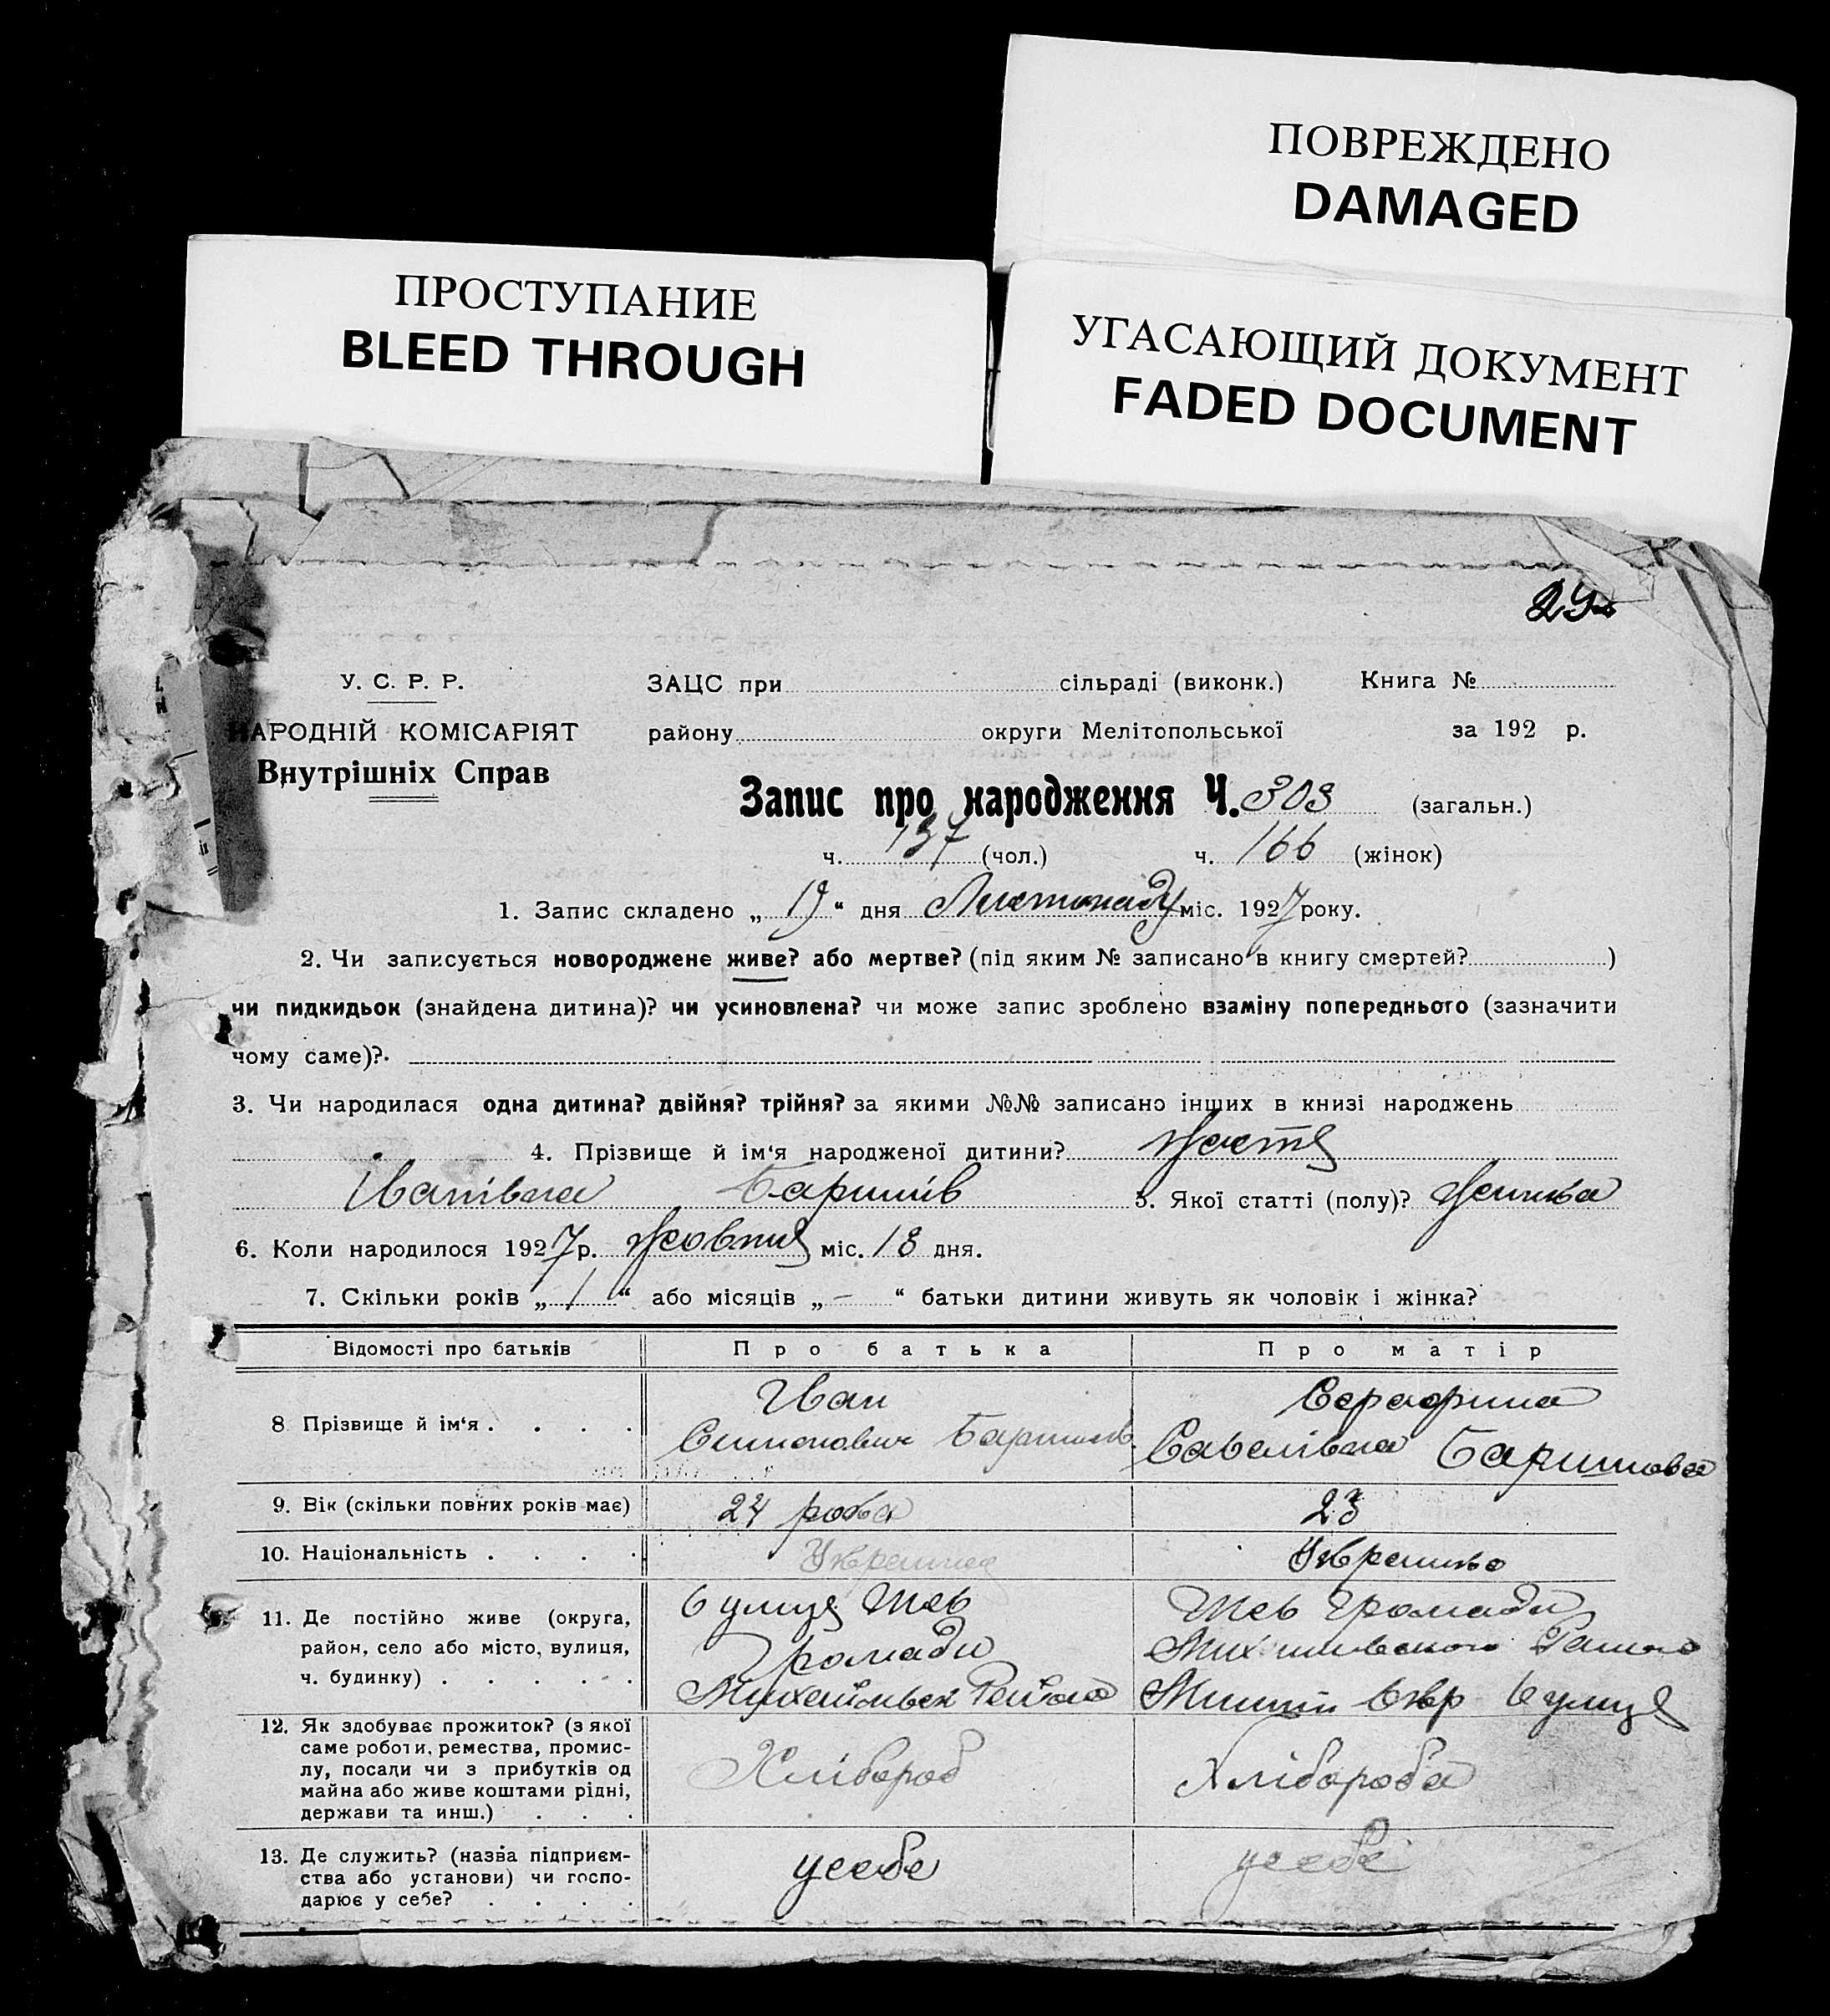 ПОВРЕЖДЕНО
DAMAGED
ПРОСТУПАНИЕ
BLEED THROUGH
УГАСАЮЩИЙ ДОКУМЕНТ
FADED DOCUMENT
У. С. Р. Р.
ЗАЦС при сільраді (виконк.) Книга №
НАРОДНІЙ КОМІСАРІЯТ
району округи Мелітопольської за 192 р.
Внутрішніх Справ
Запис про народження Ч. 303 (загальн.)
ч. 137 (чол.) ч. 166 (жінок)
1. Запис складено „ 19 “ дня Листопаду міс. 1927 року.
2. Чи записується новороджене живе? або мертве? (під яким № записано в книгу смертей? )
чи пидкидьок (знайдена дитина)? чи усиновлена? чи може запис зроблено взаміну попереднього (зазначити
чому саме)?
3. Чи народилася одна дитина? двійня? трійня? за якими №№ записано інших в книзі народжень
4. Прізвище й ім‘я народженої дитини? Настя
Іванівна Баришів 5. Якої статті (полу)? Жіинка
6. Коли народилося 1927 р. Жовтня міс. 18 дня.
7. Скільки років „ 1 “ або місяців „ – “ батьки дитини живуть як чоловік і жінка?
Відомості про батьків Про батька Про матір
8 Прізвище й ім‘я . . . .
Иван
Семенович Баришів
Серафима
Савелівна Баришова
9. Вік (скільки повних років має) 24 рока 23
10. Національність . . . . Украинец Украинка
11. Де постійно живе (округа,
район, село або місто, вулиця,
ч. будинку) . . . . .
Громади
Михайлівск Району
Громади
12. Як здобуває прожиток? (з якої
саме роботи, ремества, промис-
лу, посади чи з прибутків од
майна або живе коштами рідні,
держави та инш.) . . .
Хлібороб Хлібороба
13. Де служить? (назва підприєм-
ства або установи) чи госпо-
дарює у себе? . . . .
усебе усебе